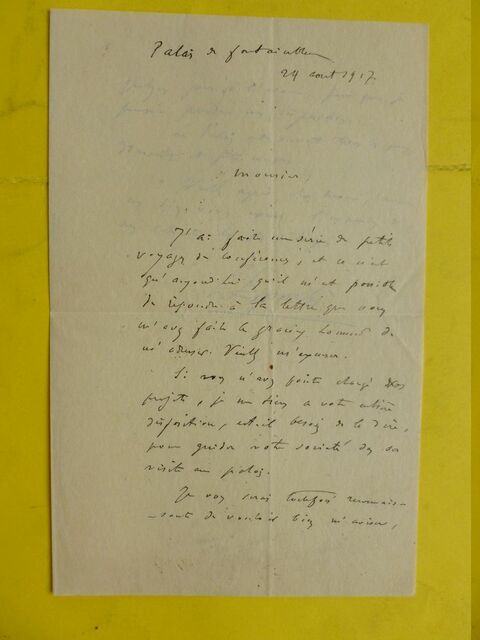 Palais de Fontainebleau
24 août 1917
Monsieur,
J'ai fait une série de petits
voyages de conférences, et ce n'est
qu'aujourd'hui qu'il m'est possible
de répondre à la lettre que vous
m'avez fait le gracieux honneur de
m'adresser. Veuillez m'excuser.
Si vous n'avez point changé vos
projets, je me tiens à votre entière
disposition, est-il besoin de le dire,
pour guider votre société dans sa
visite au palais.
Je vous serai toutefois reconnais-
-sant de vouloir bien m'aviser,